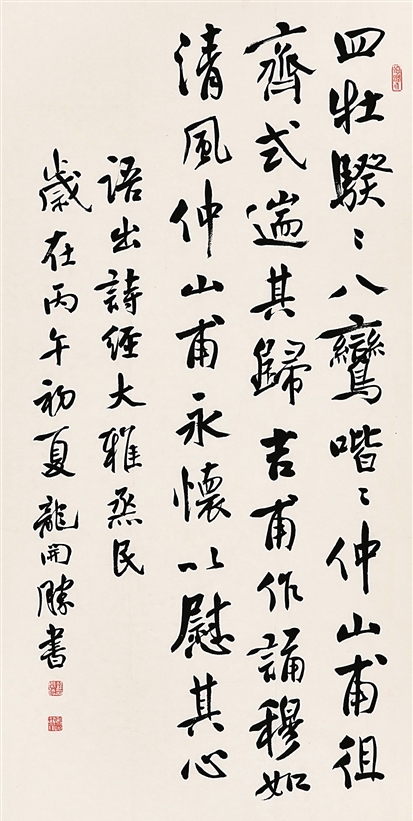 四牡騤〻八鸞喈〻仲山甫徂
齊式遄其歸吉甫作誦穆如
清風仲山甫永懷以慰其心
語出詩經大雅烝民
歲在丙午初夏龍開勝書